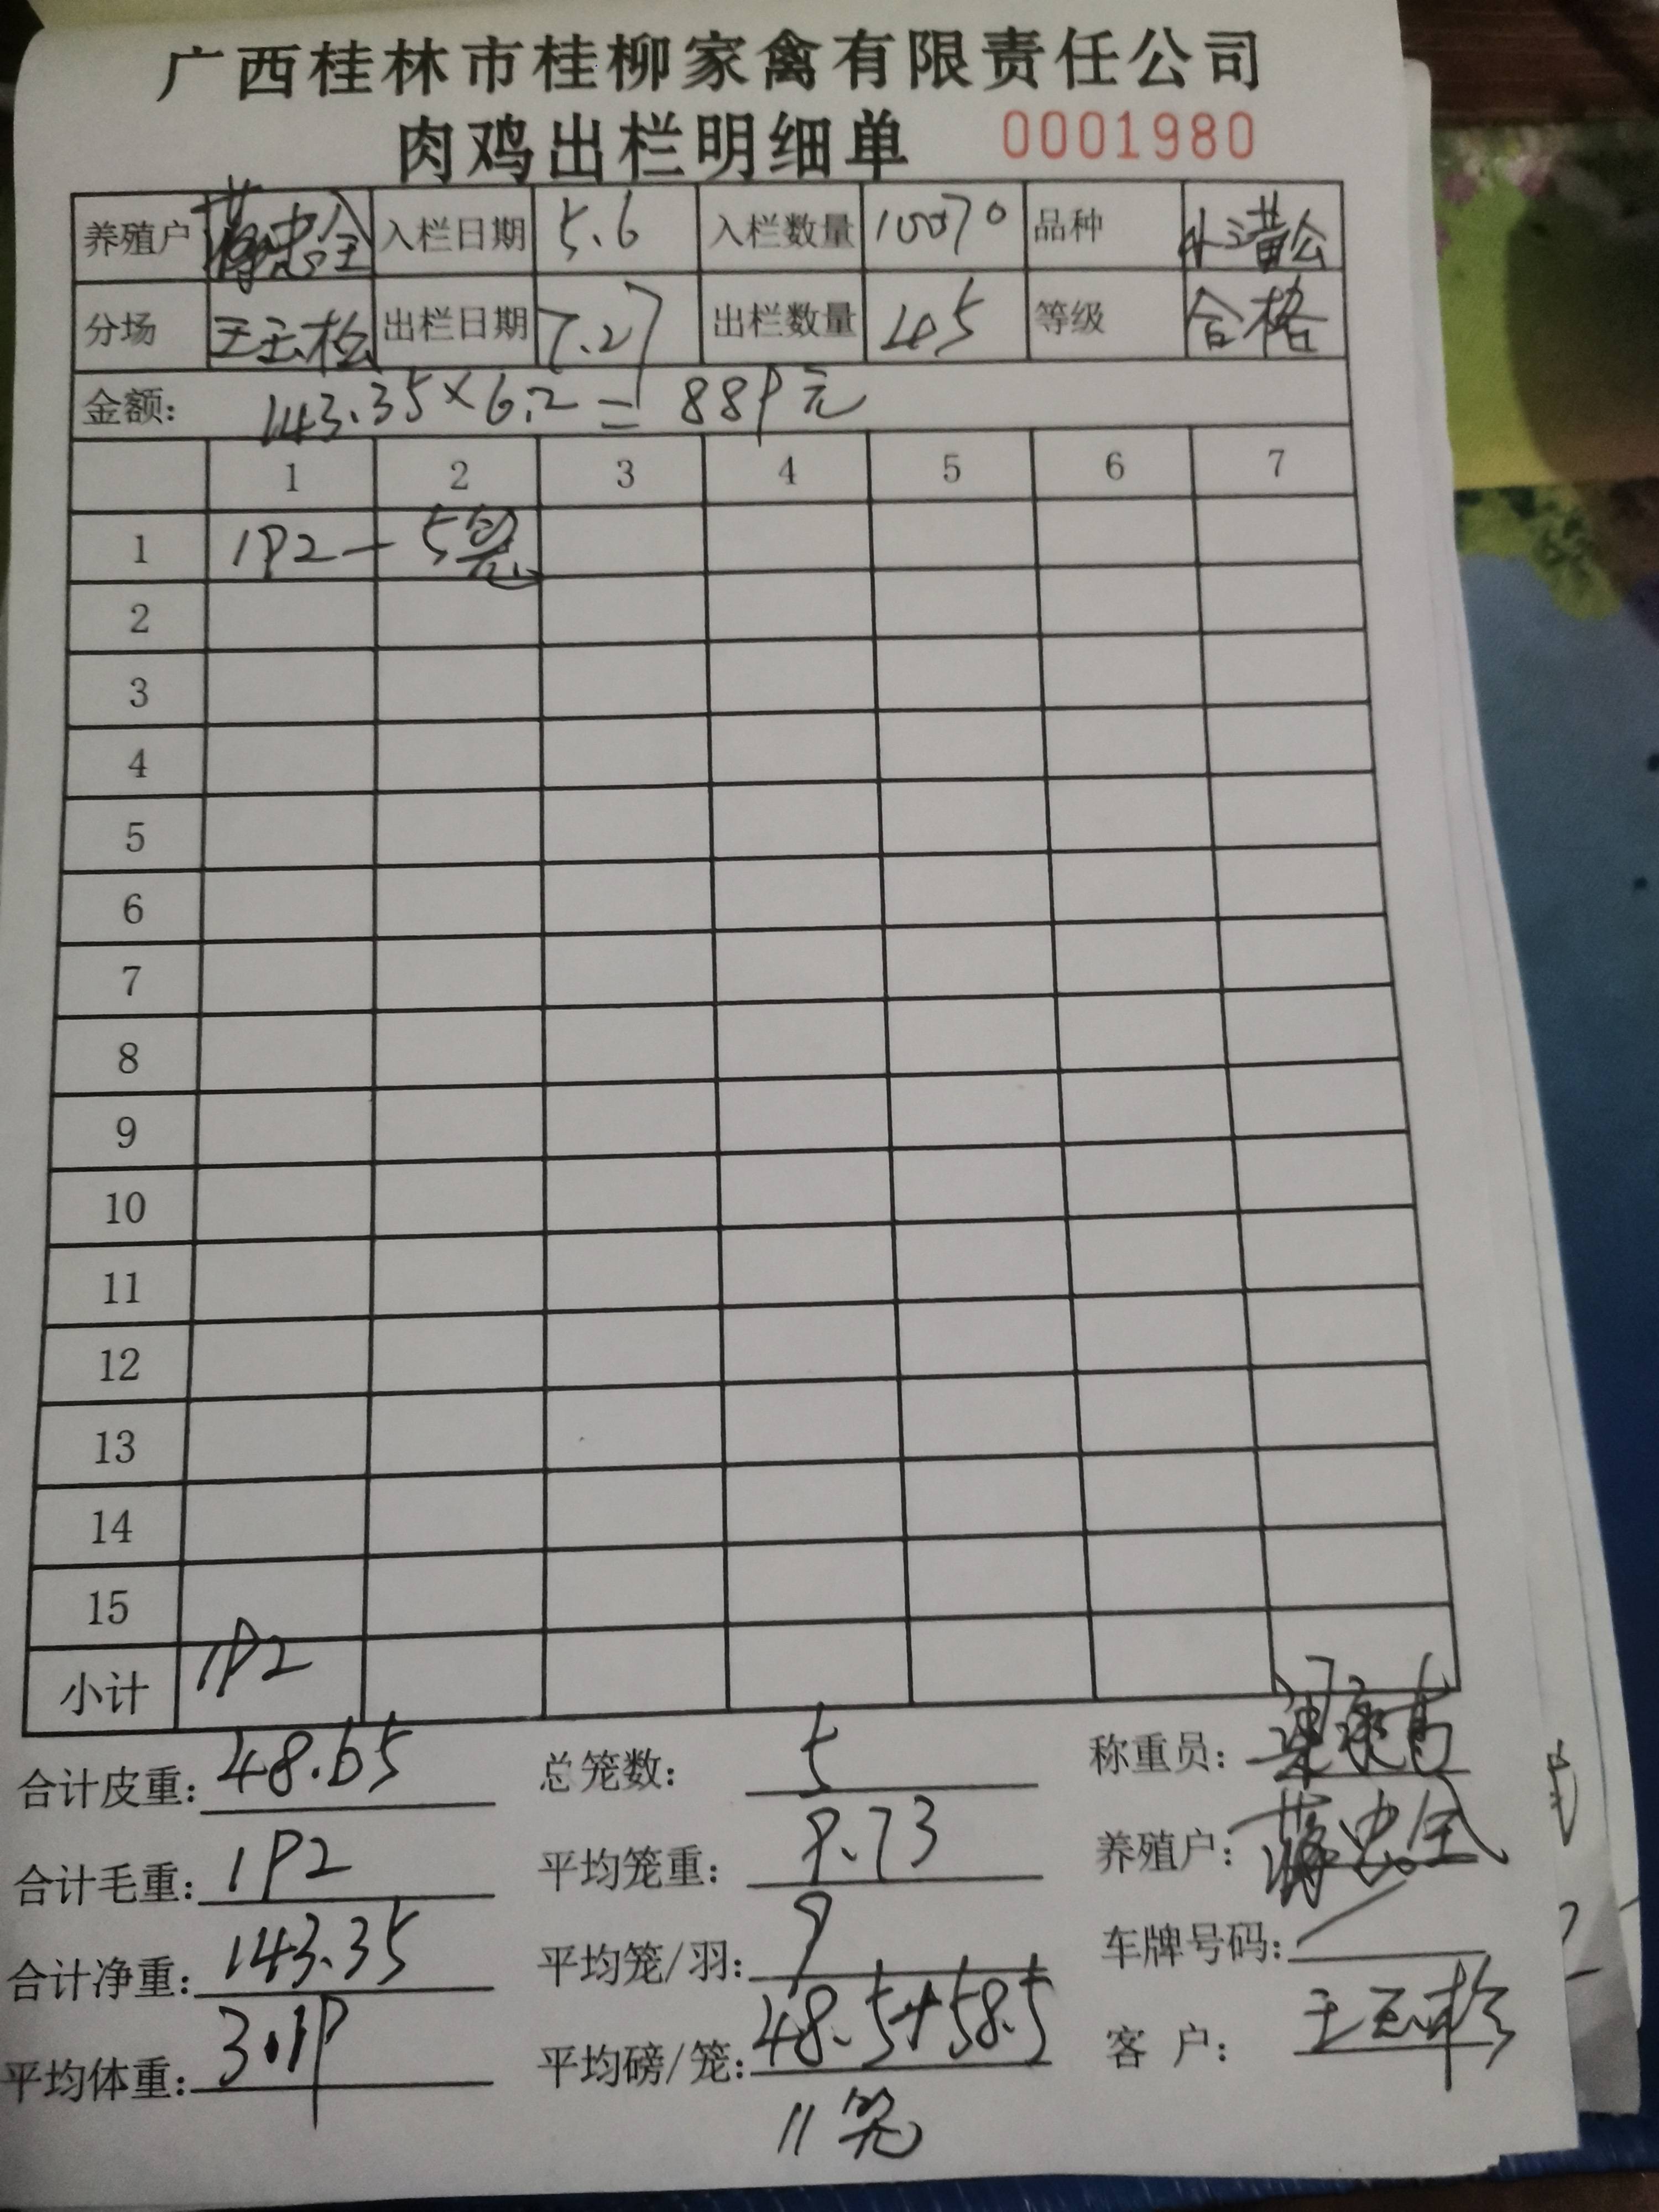 广西桂林市桂柳家禽有限责任公司
肉鸡出栏明细单 0001980
养殖户 蒋忠全 入栏日期 5.6 入栏数量 10070 品种
分场 出栏日期 7.27 出栏数量 45 等级 合格
金额: 143.35×6.2=889元
1 2 3 4 5 6 7
1 192-5笼
2
3
4
5
6
7
8
9
10
11
12
13
14
15
小计 192
合计皮重: 48.65 总笼数: 5 称重员:
合计毛重: 192 平均笼重: 9.73 养殖户: 蒋忠全
合计净重: 143.35 平均笼/羽: 9 车牌号码: /
平均体重: 3.19 平均磅/笼: 48.5+58.5 客 户:
11笼